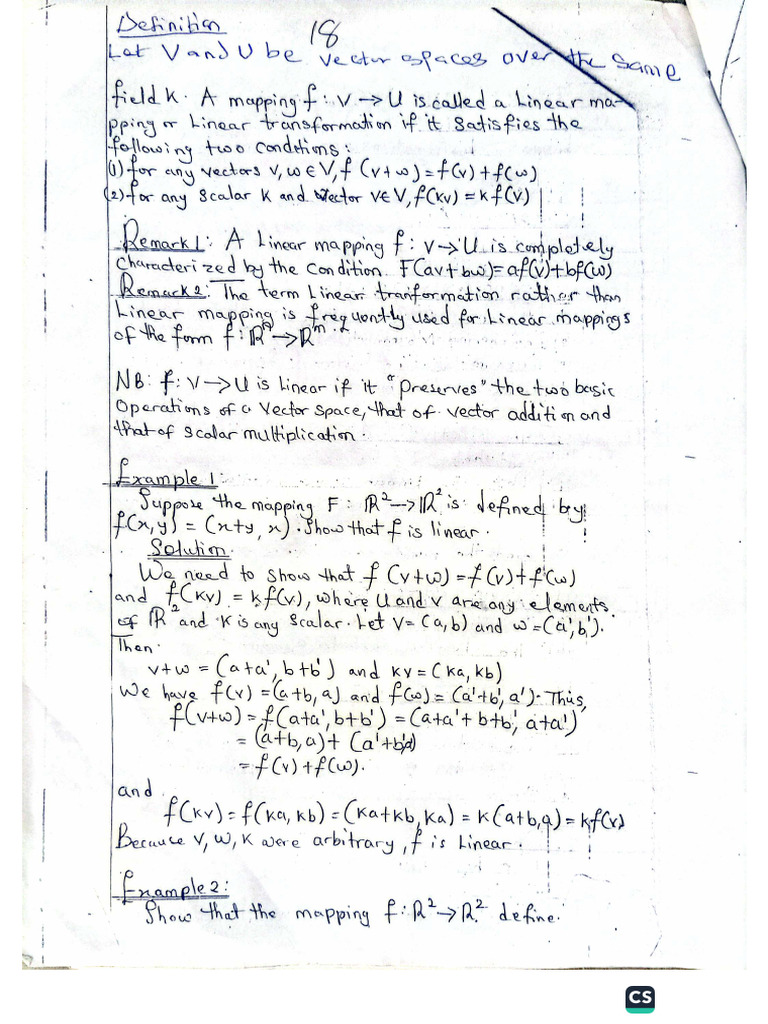 Definition
18
Let V and U be vector spaces over the same
field K. A mapping f: V → U is called a Linear ma-
pping or Linear transformation if it satisfies the
following two conditions:
(1) for any vectors v, w ∈ V, f (v+w) = f(v) + f(w)
(2) for any scalar K and vector v∈V, f(kv) = k f(v)
Remark 1: A Linear mapping f: V → U is completely
characterized by the condition. F(av + bw) = af(v)+bf(w)
Remark 2: The term Linear tranformation rather than
Linear mapping is frequently used for Linear mappings
of the form f: Rⁿ → Rᵐ.
NB: f: V → U is Linear if it "preserves" the two basic
operations of a vector space, that of vector addition and
that of scalar multiplication.
Example 1:
Suppose the mapping F: R² → R² is defined by
f(x,y) = (x+y, x). Show that f is linear.
Solution.
We need to show that f (v+w) = f(v) + f(w)
and f(kv) = k f(v), where U and v are any elements
of R² and K is any scalar. Let v = (a, b) and w = (a', b').
Then
v+w = (a+a', b+b') and kv = (ka, kb)
We have f(v) = (a+b, a) and f(w) = (a'+b', a'). Thus,
f(v+w) = f(a+a', b+b') = (a+a' + b+b', a+a')
= (a+b, a) + (a'+b', a')
= f(v) + f(w).
and
f(kv) = f(ka, kb) = (ka+kb, ka) = k(a+b, a) = kf(v)
Because v, w, k were arbitrary, f is Linear.
Example 2:
Show that the mapping f: R² → R² define.
CS